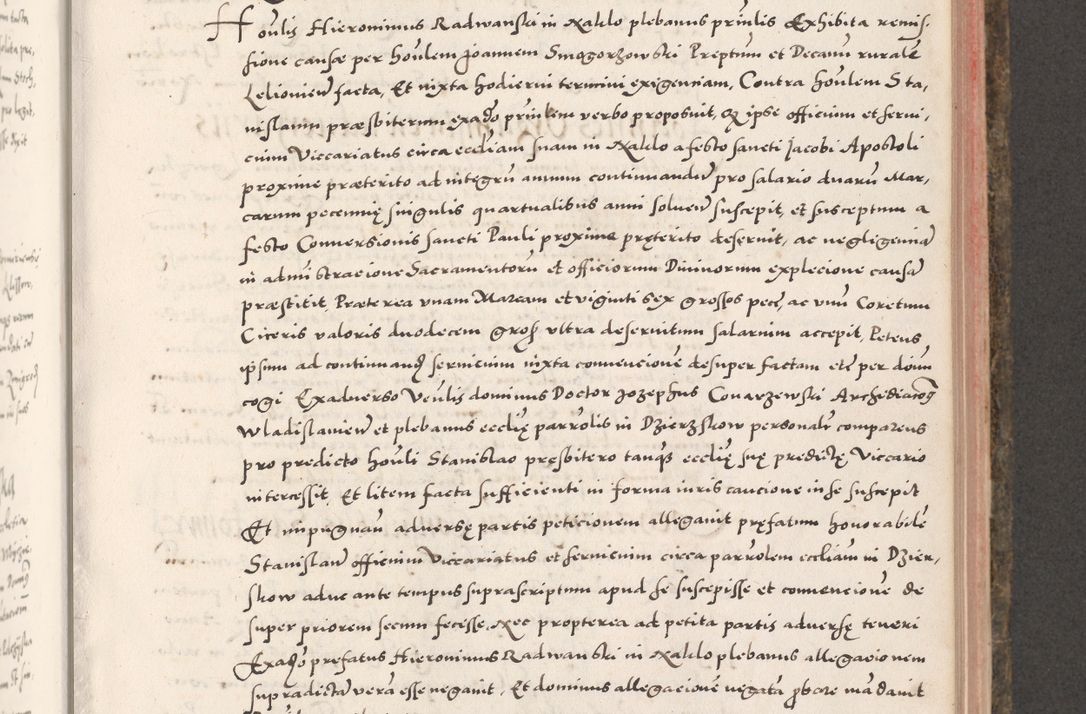 Honlis Hieronimus Radwanski in Naklo plebanus prinlis Exhibita remis-
sione causæ per honlem Joannem Smogorzowski Preptum et Decanu rurale
Leliovien facta, Et iuxta hodierni termini exigenciam, Contra honlem Sta,
nislaum præsbiterum ex ad prinlem verbo proposuit, Qz ipse officium et servi,
cium Viccariatus circa eccliam suam in Naklo a festo sancti Jacobi Apostoli
proxime præterito ad integru annum continuandu pro salario duaru Mar,
carum pecunię singulis quartualibus anni solven suscepit, et susceptum a
festo Conversionis sancti Pauli proxime pręterito deseruit, ac negligencia
in administracione Sacramentoru et officiorum Divinorum explecione causa
præstitit Præterea unam Marcam et viginti sex grossos pec, ac unu Coretum
Ciceris valoris duodecem gross ultra deservitum salarium accepit, Petens
ipsum ad continuand servicium iuxta convencione desuper factam etc per dom
cogi Exadverso Venlis dominus Doctor Jozephus Covarzewski Archidiacog
Wladislavien et plebanus ecclię parrolis in Dzierzskow personalr comparens
pro predicto honli Stanislao pręsbitero tanq ecclię suę predictę Viccario
intercessit Et litem facta sufficienti in forma iuris caucione in se suscepit
Et impugnan adversę partis peticionem allegavit pręfatum honorabile
Stanislau officium Viccariatus et servicium circa parrolem eccliam in Dzier,
skow aduc ante tempus suprascriptum apud se suscepisse et convencione de
super priorem secum fecesse Nec propterea ad petita partis adversę teneri
Ex ado prefatus Hieronimus Radwanski in Naklo plebanus allegacionem
supradicta vera esse negavit, Et dominus allegacione negata pbare mandavit